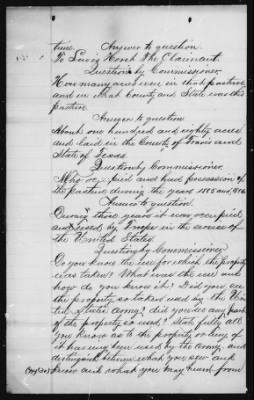 time. Answer to question.
To Lewis Horst The Claimant.
Question by Commissioner.
How many acres were in that pasture
and in what County and State was this
pasture.
Answer to question
About one hundred and eighty acres
and laid in the County of Travis and
State of Texas.
Question by Commissioner
Who occupied and had possession of
the pasture during the years 1865 and 1866
Answer to question.
During those years it was occupied
and used by troops in the service of
the United States.
Question by Commissioner
Do you know the use for which the property
was taken? What was the use and
how do you know it? Did you see
the property so taken used by the Uni-
ted States Army? did you see any part
of the property so used? State fully all
you know as to the property or any of
it having been used by the Army and
distinguish between what you saw and
know and what you may heard from